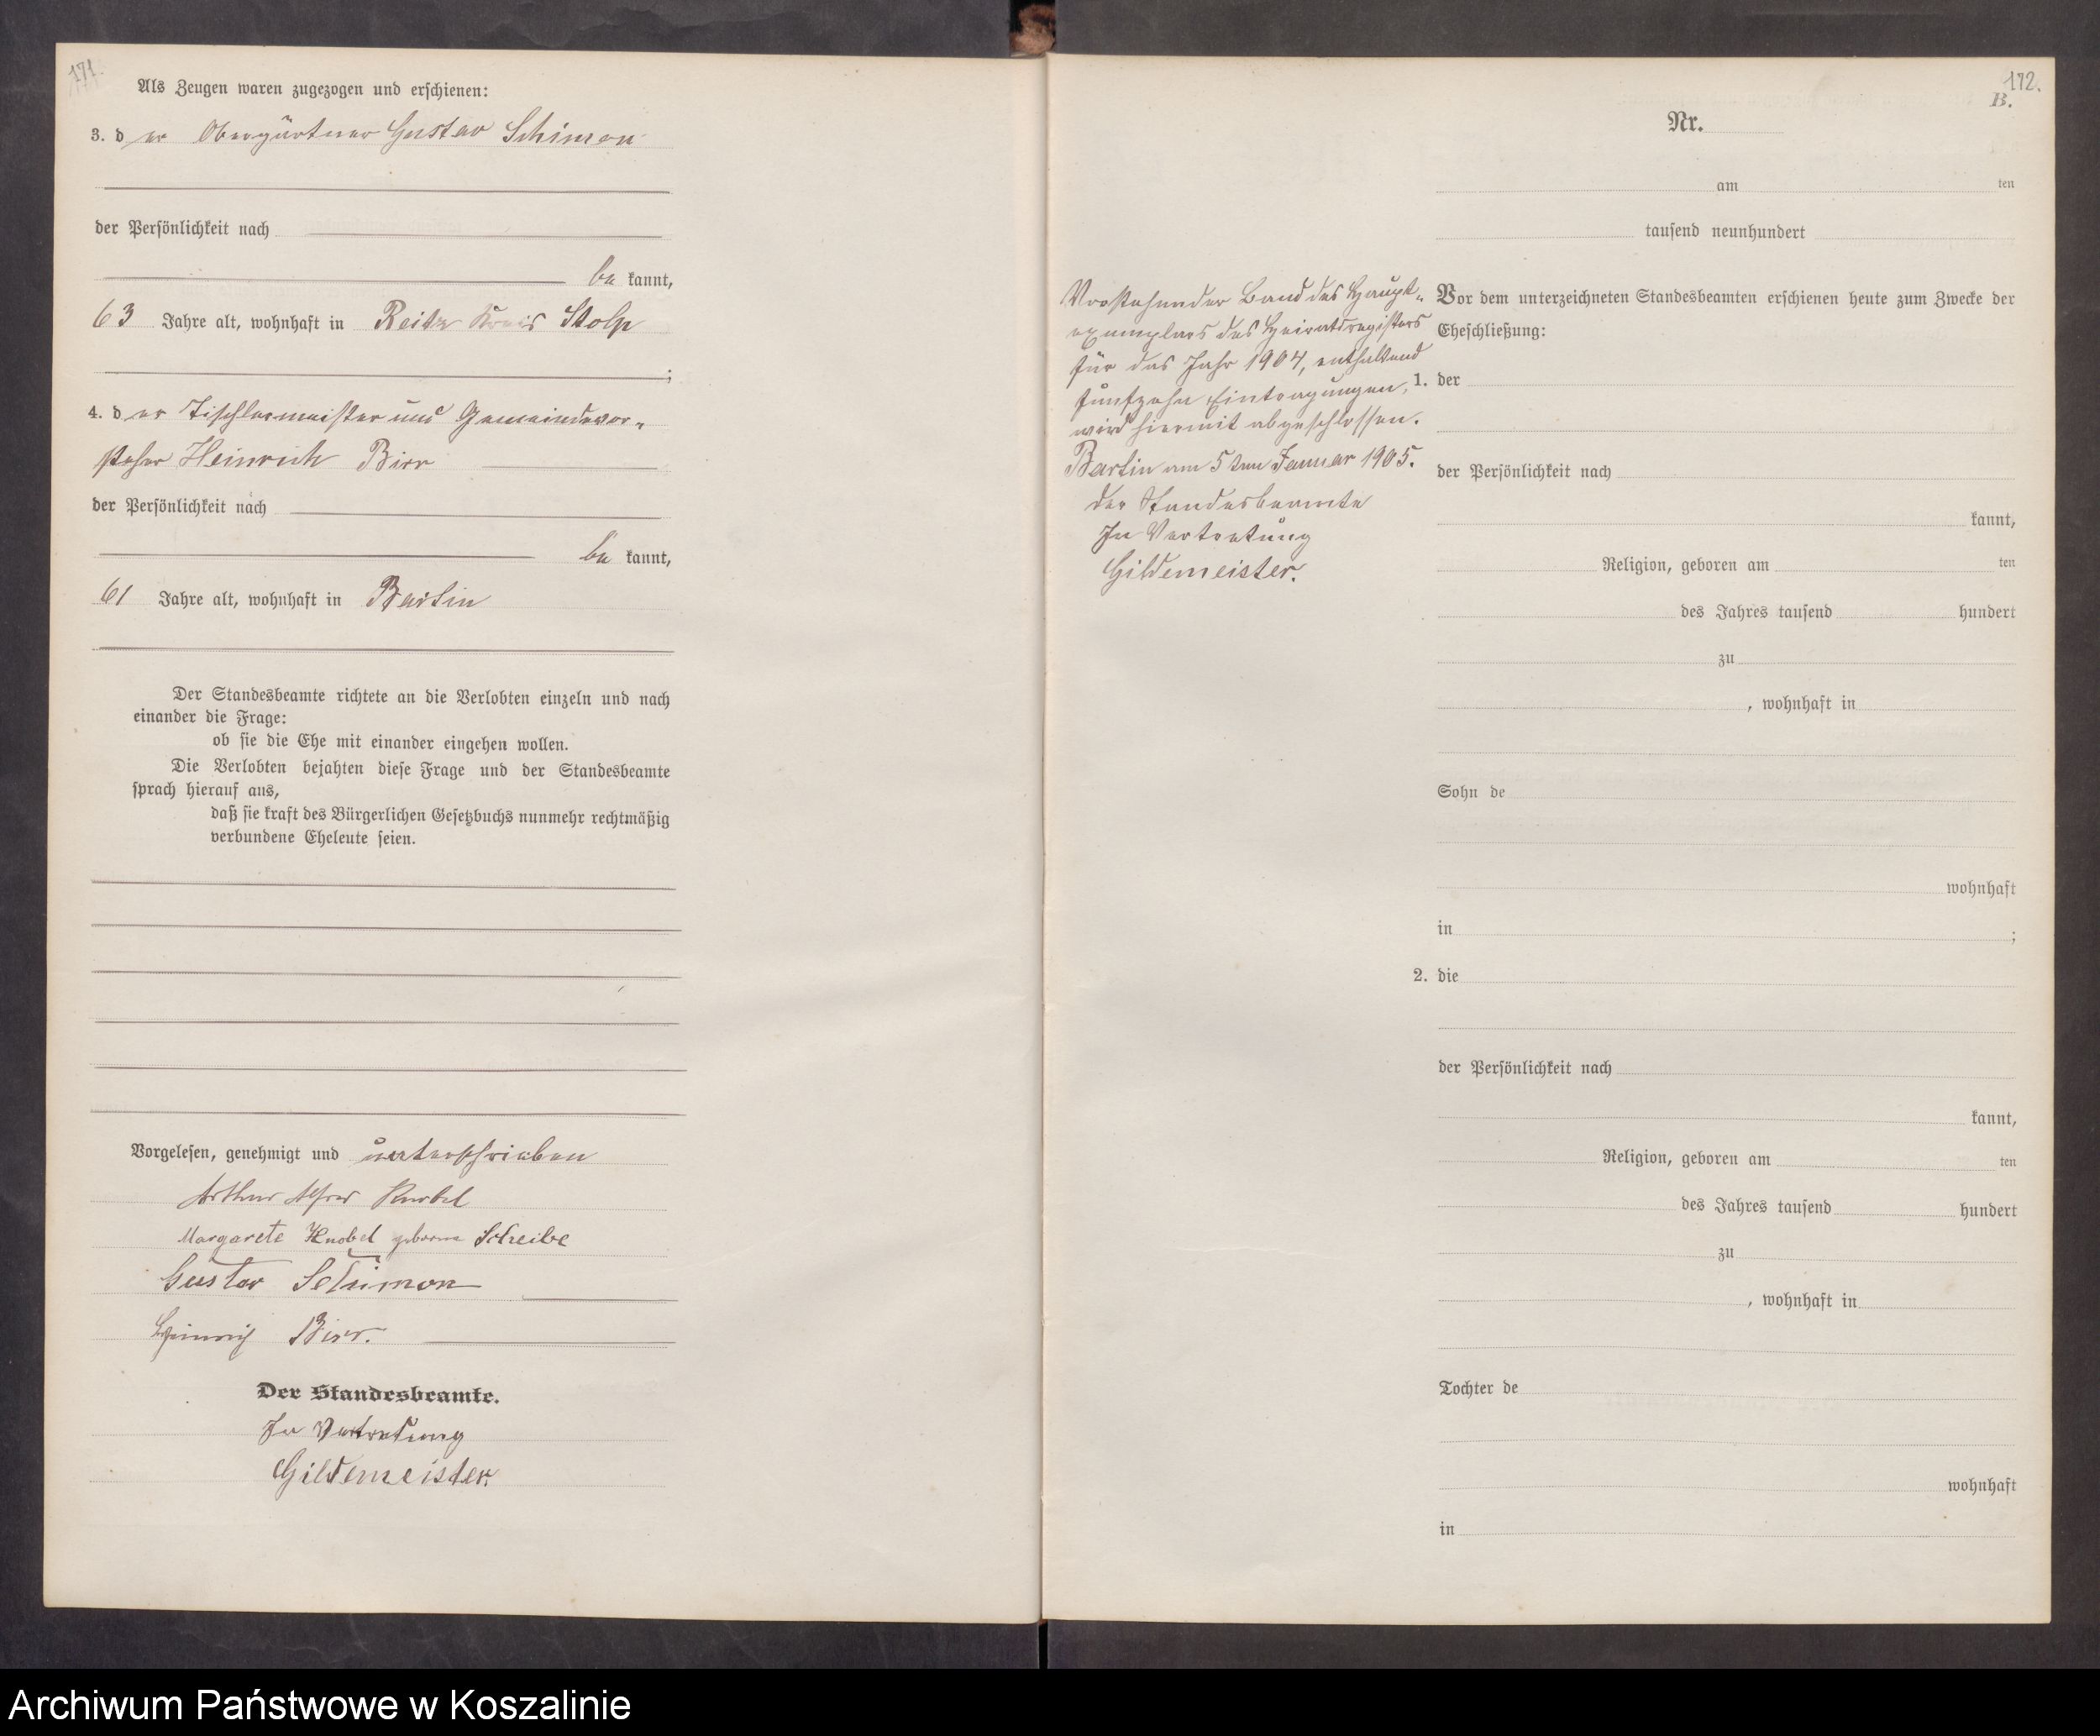 171.
Als Zeugen waren zugezogen und erschienen:
3. der Obergärtner Gustav Schimon
der Persönlichkeit nach
bekannt,
63 Jahre alt, wohnhaft in Reitz Kreis Stolp
;
4. der Tischlermeister und Gemeindevor-
steher Heinrich Birr
der Persönlichkeit nach
bekannt,
61 Jahre alt, wohnhaft in Bartin
Der Standesbeamte richtete an die Verlobten einzeln und nach
einander die Frage:
ob sie die Ehe mit einander eingehen wollen.
Die Verlobten bejahten diese Frage und der Standesbeamte
sprach hierauf aus,
daß sie kraft des Bürgerlichen Gesetzbuchs nunmehr rechtmäßig
verbundene Eheleute seien.
Vorgelesen, genehmigt und unterschrieben
Arthur Knobel
Margarete Knobel geborene Scheibe
Gustav Schimon
Heinrich Birr.
Der Standesbeamte.
In Vertretung
Gildemeister.
172.
B.
Nr.
am ten
tausend neunhundert
Vorstehender Band des Haupt-
exemplars des Heiratsregisters
für das Jahr 1904, enthaltend
fünfzehn Eintragungen,
wird hiermit abgeschlossen.
Bartin am 5ten Januar 1905.
der Standesbeamte
In Vertretung
Gildemeister.
Vor dem unterzeichneten Standesbeamten erschienen heute zum Zwecke der
Eheschließung:
1. der
der Persönlichkeit nach
kannt,
Religion, geboren am ten
des Jahres tausend hundert
zu
, wohnhaft in
Sohn de
wohnhaft
in ;
2. die
der Persönlichkeit nach
kannt,
Religion, geboren am ten
des Jahres tausend hundert
zu
, wohnhaft in
Tochter de
wohnhaft
in
Archiwum Państwowe w Koszalinie